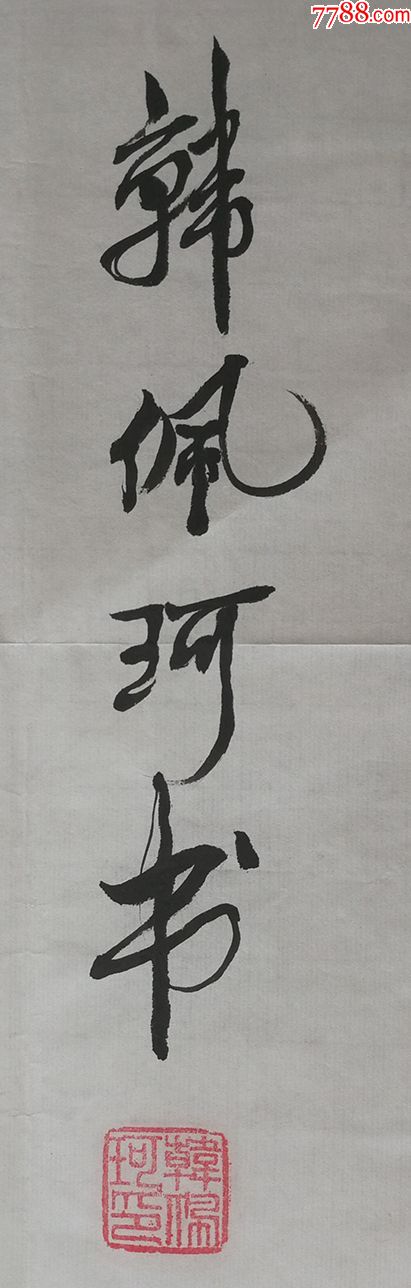 7788.com
韩佩珂书
韓佩
珂印